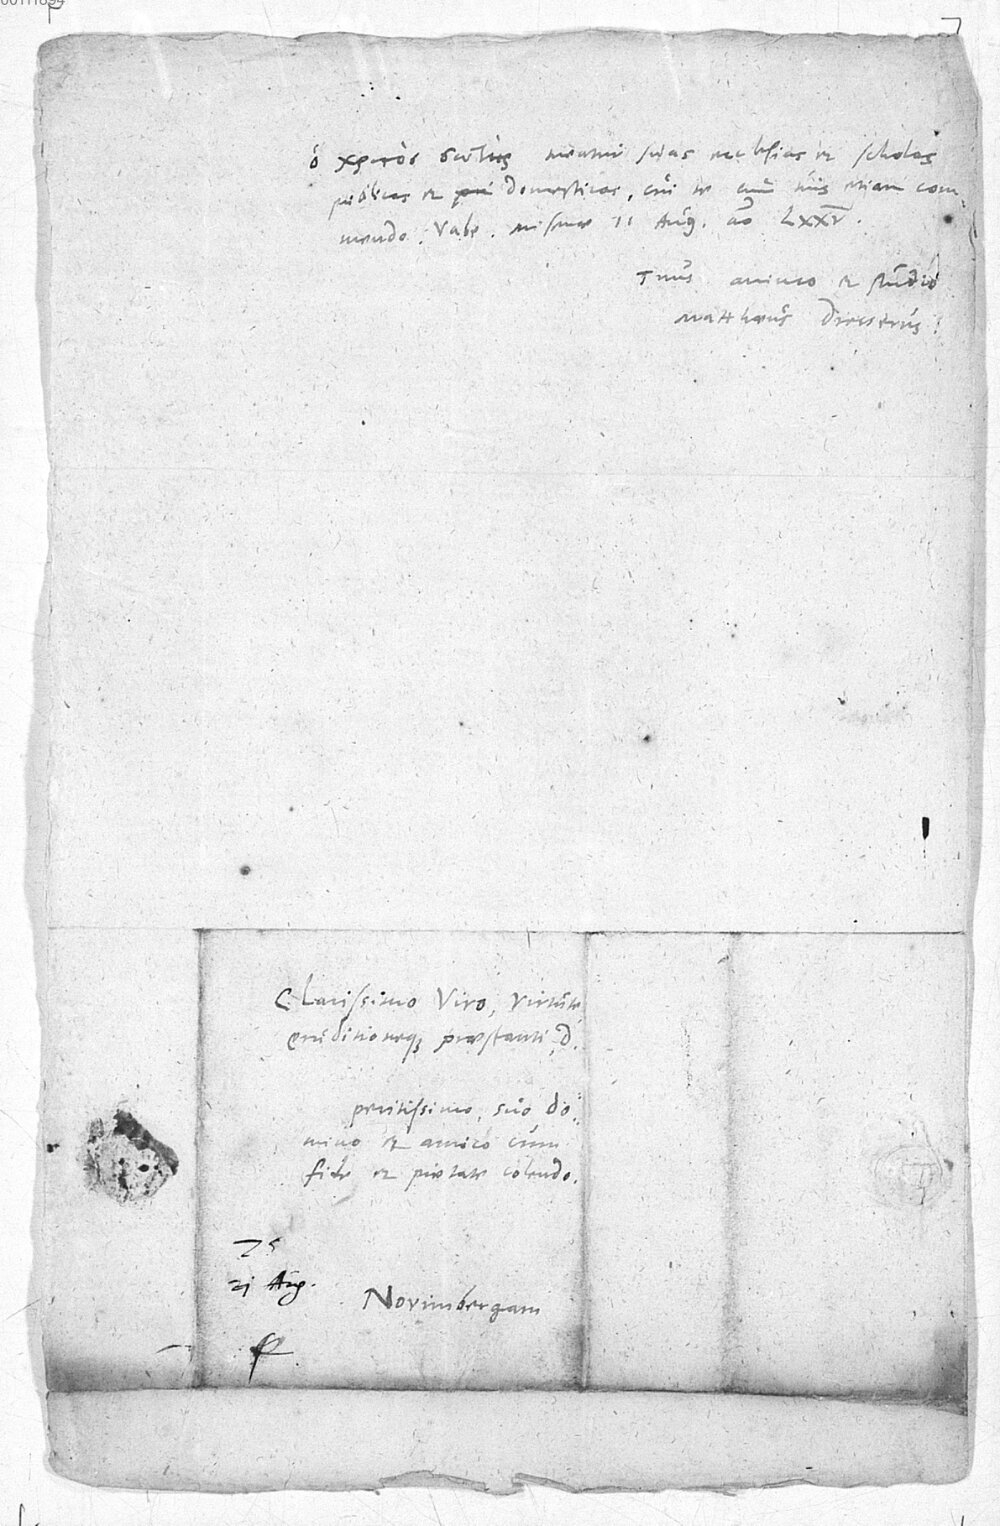 ὁ χριστὸς σωτὴρ suas ecclesias et scholas
publicas et domesticas, cui te cum tuis etiam com¬
mendo. Vale. Misnae 11 Aug. ao LXXV.
Tuus animo et studio
Matthaeus Dresserus.
Clarissimo Viro, virtute
eruditioneq; praestanti, d.
peritissimo, suo do¬
mino et amico cum
fide et pietate colendo.
75
21 Aug.
Norimbergam